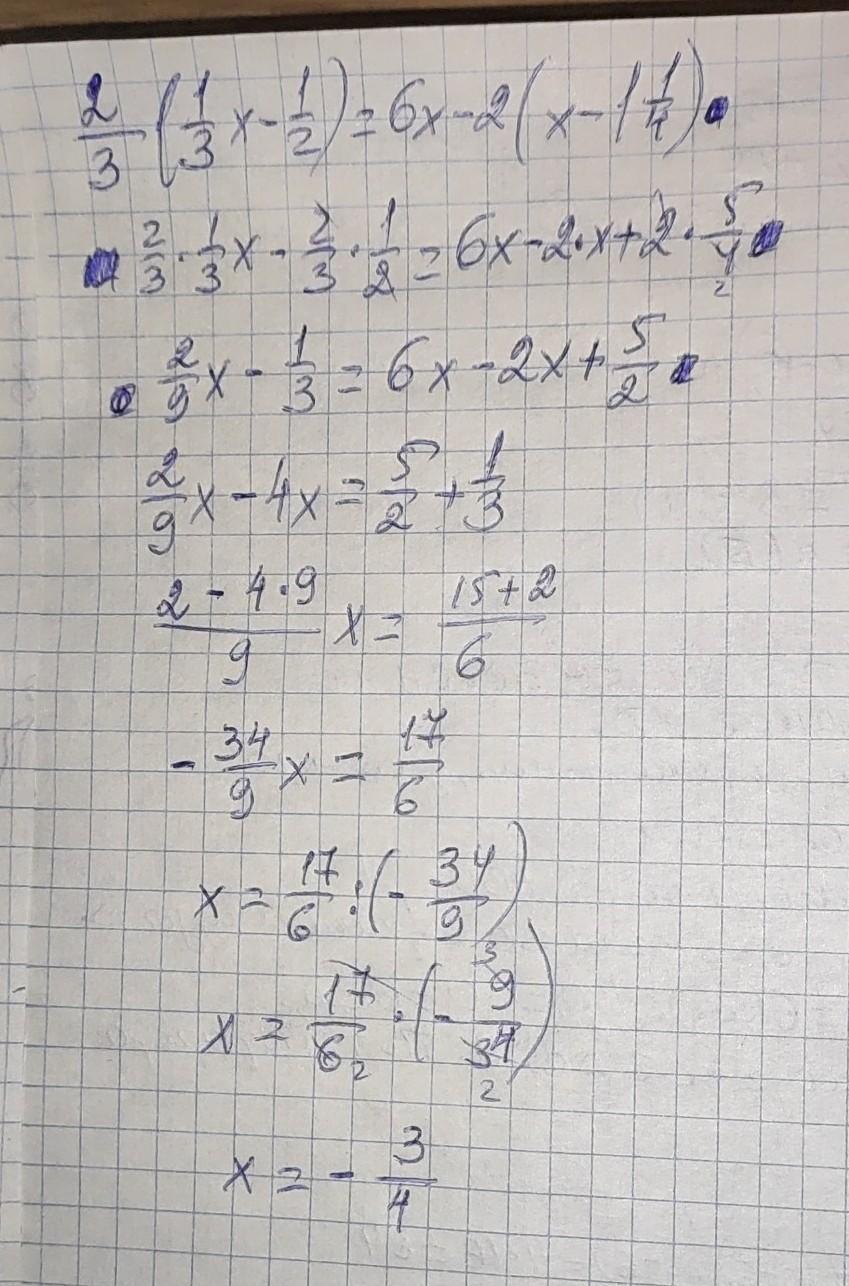 2/3 (1/3 x - 1/2) = 6x - 2(x - 1 1/4)
2/3 · 1/3 x - 2/3 · 1/2 = 6x - 2·x + 2 · 5/4 2
2/9 x - 1/3 = 6x - 2x + 5/2
2/9 x - 4x = 5/2 + 1/3
(2 - 4·9)/9 x = (15+2)/6
- 34/9 x = 17/6
x = 17/6 : (- 34/9)
x = 17/6 2 · (- 9 3/34 2)
x = - 3/4